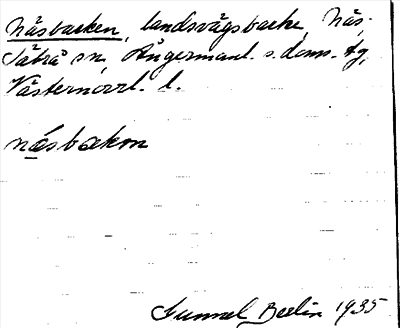 Näsbacken, landsvägsbacke, Näs,
Jättrå sn, Ångermanl. s. doms. tg,
Västernorrl. l.
näsbakon
Gunnel Beelin 1935